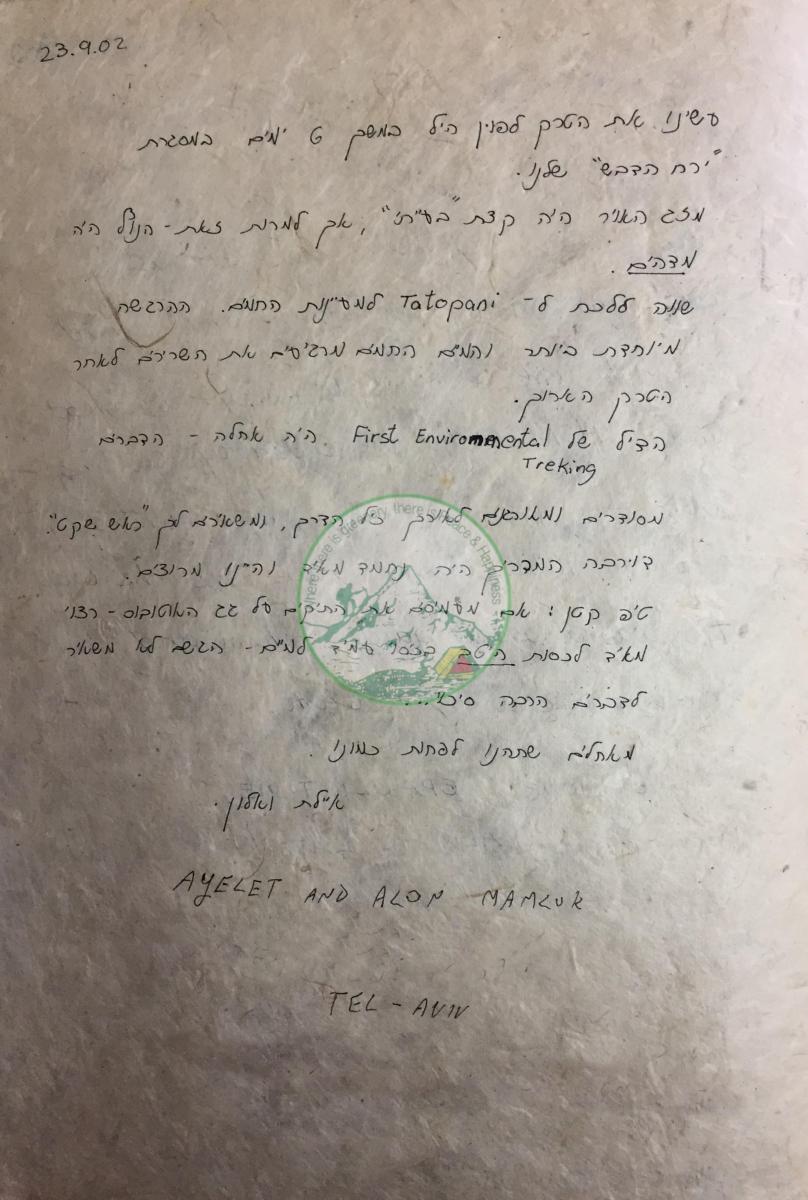 23.9.02
עשינו את הטרק לפון היל במשך 6 ימים במסגרת
"ירח הדבש" שלנו.
מזג האויר היה קצת "בעייתי", אך למרות זאת - הנוף היה
מדהים.
שווה ללכת ל- Tatopani למעיינות החמים. ההרגשה
מיוחדת ביותר והמים החמים מרגיעים את השרירים לאחר
הטרק הארוך.
הטיול של First Enviromental היה אחלה - הדברים
Treking
מסודרים ומאורגנים לאורך כל הדרך, ומשאירים לך "ראש שקט".
המדריך היה נחמד מאוד והיינו מרוצים.
טיפ קטן: אם מעמיסים את התיקים על גג האוטובוס - רצוי
מאוד לכסות היטב בכיסוי עמיד למים - הגשם לא משאיר
לדברים הרבה סיכוי...
מאחלים שתהנו לפחות כמונו.
איילת ואלון.
AYELET AND ALON MAMLUK
TEL-AVIV
where there is greenery, there is Peace & Happiness